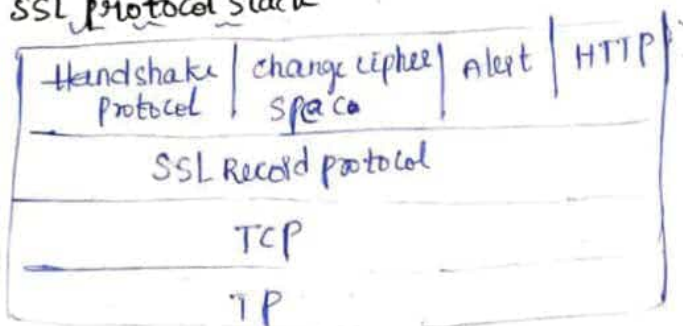 SSL protocol stack
Handshake protocol | change cipher spec | Alert | HTTP
SSL Record protocol
TCP
IP